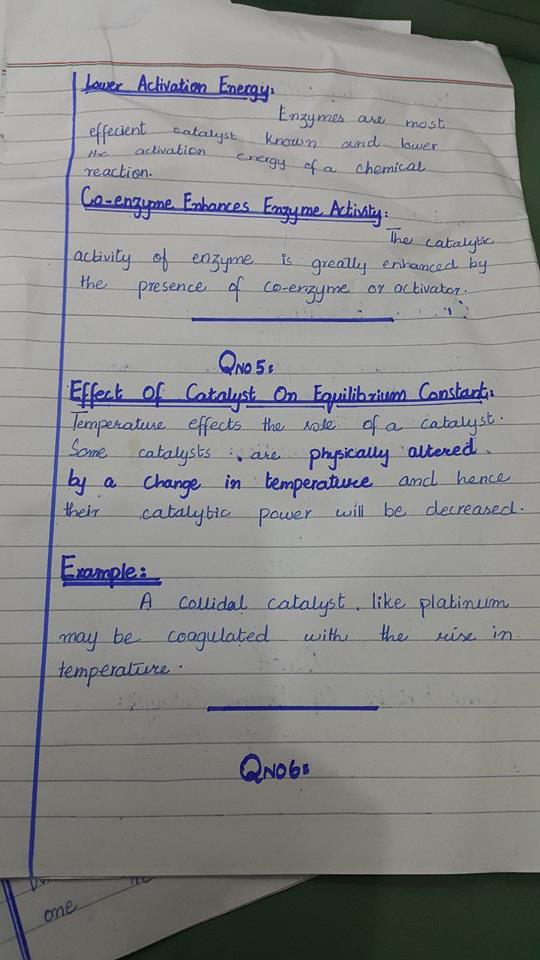 Lower Activation Energy:
Enzymes are most
effecient catalyst known and lower
the activation energy of a chemical
reaction.
Co-enzyme Enhances Enzyme Activity:
The catalytic
activity of enzyme is greatly enhanced by
the presence of co-enzyme or activator.
QNO5:
Effect Of Catalyst On Equilibrium Constant:
Temperature effects the role of a catalyst.
Some catalysts are physically altered
by a change in temperature and hence
their catalytic power will be decreased.
Example:
A collidal catalyst, like platinum
may be coagulated with the rise in
temperature.
QNO6:
one